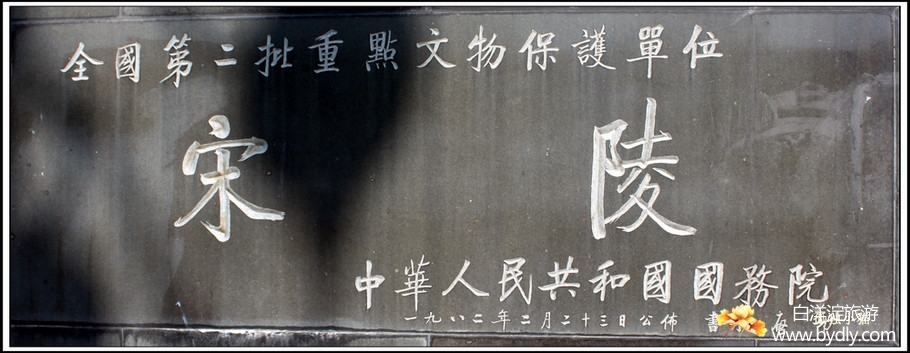 全國第二批重點文物保護單位
宋陵
中華人民共和國國務院
一九八二年二月二十三日公佈 書
白洋淀旅游
www.bydly.com